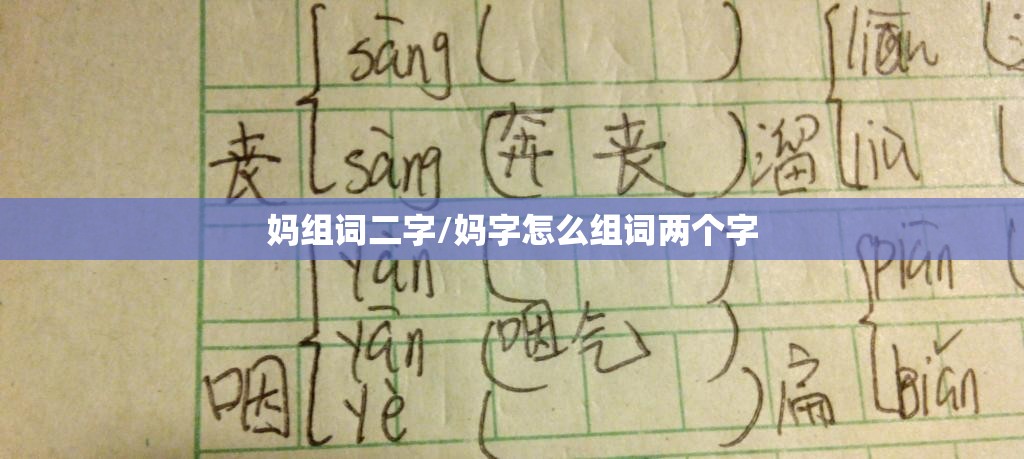 sāng ( ) liān (
丧 sàng (奔 丧) 溜 liū (
妈组词二字/妈字怎么组词两个字
yàn ( ) piān (
yān (咽气)
咽 yè ( ) 扁 biǎn